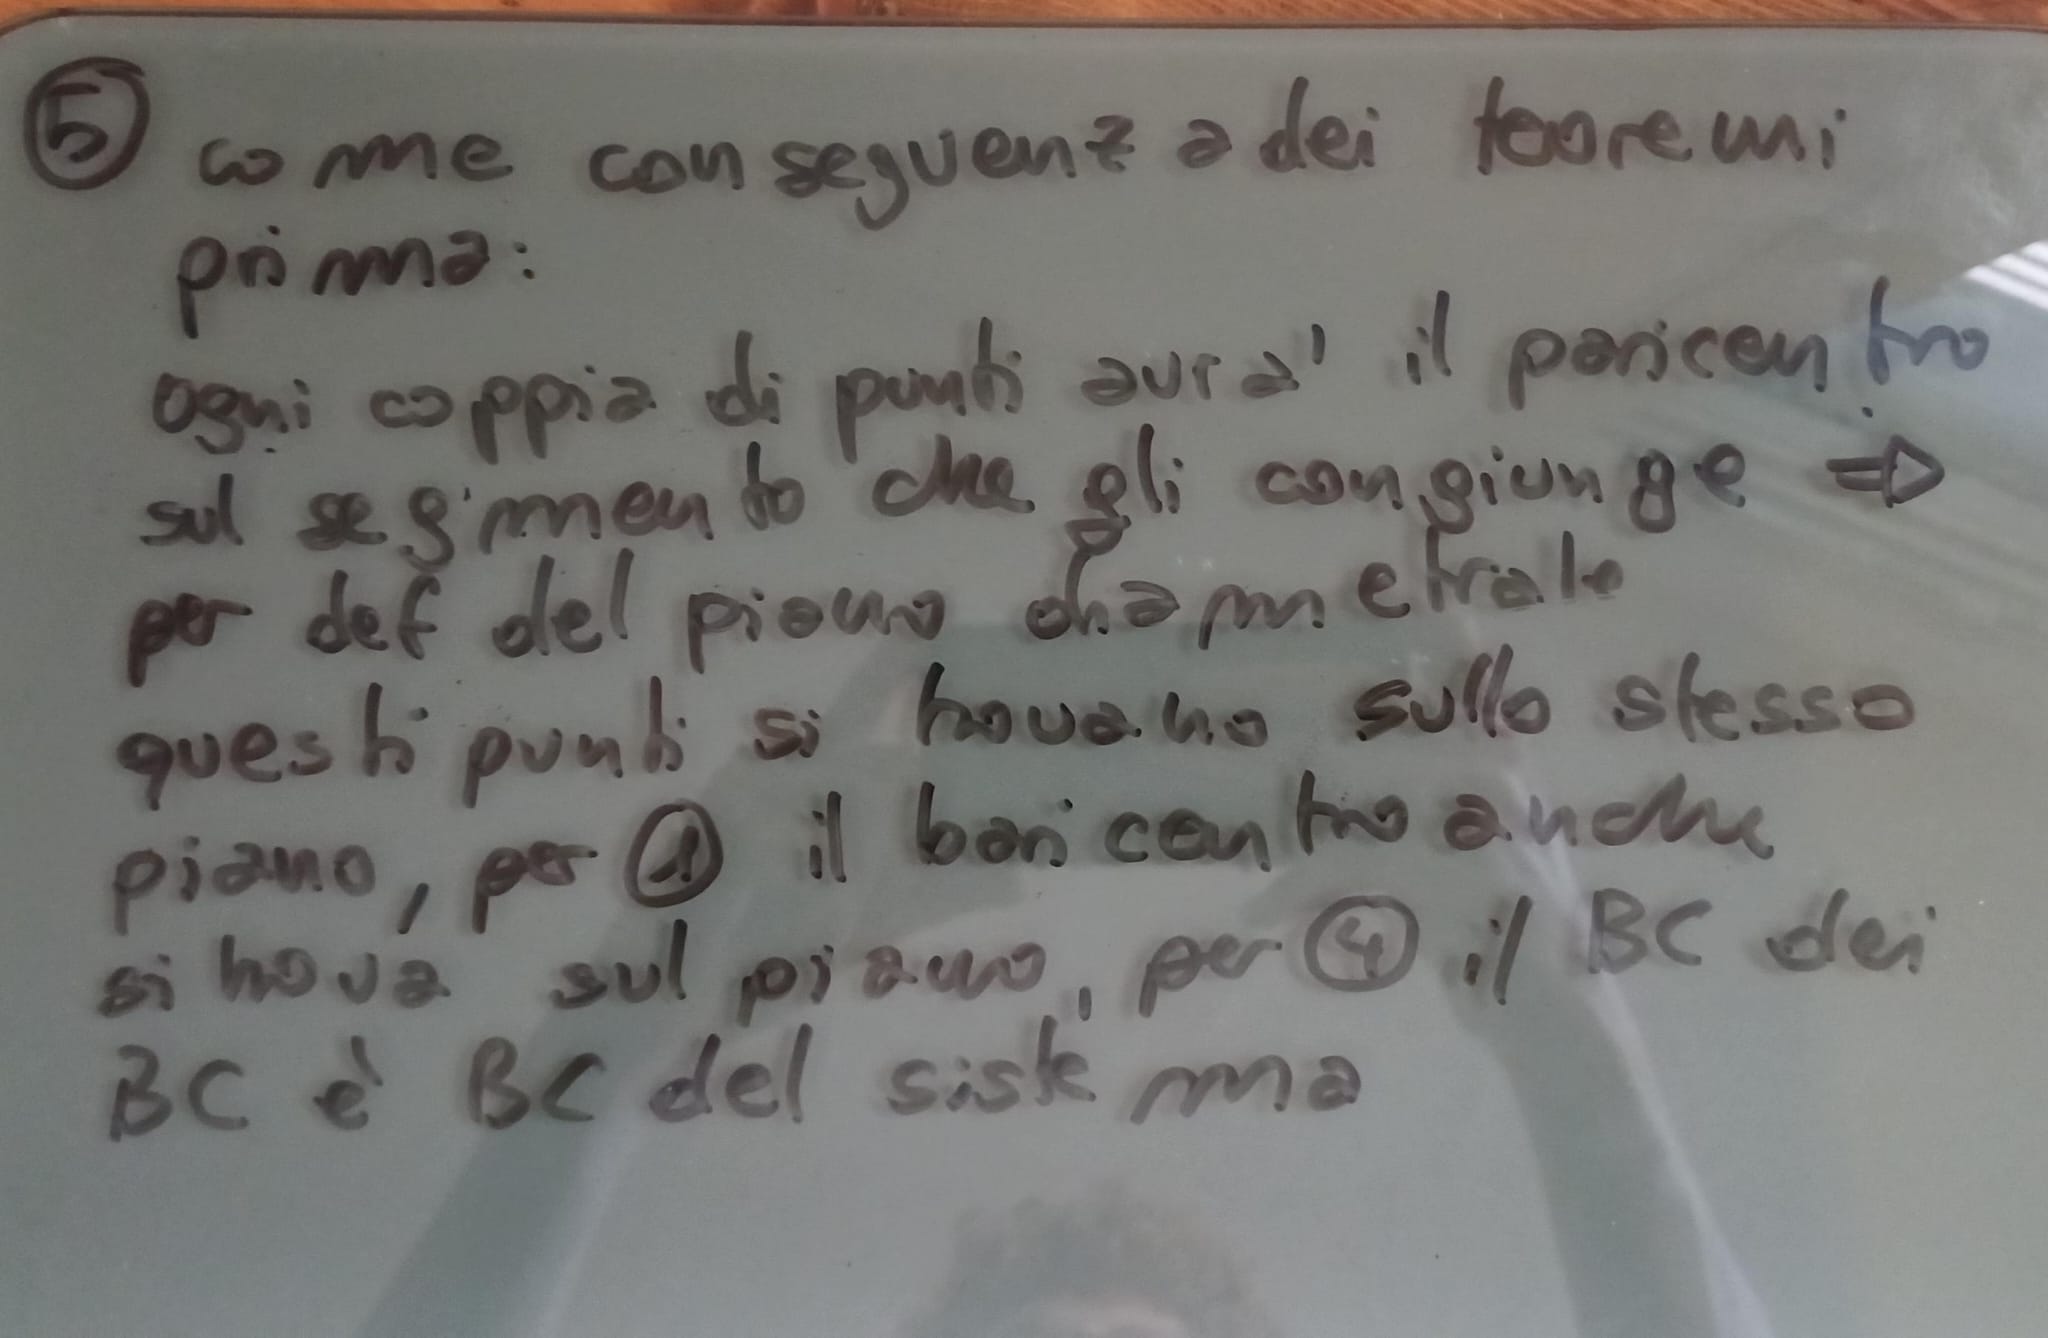 ⑤ come conseguenza dei teoremi
prima:
ogni coppia di punti avra' il paricentro
sul segmento che gli congiunge ⇒
per def del piano diametrale
questi punti si trovano sullo stesso
piano, per ① il baricentro anche
si trova sul piano, per ④ il BC dei
BC è BC del sistema